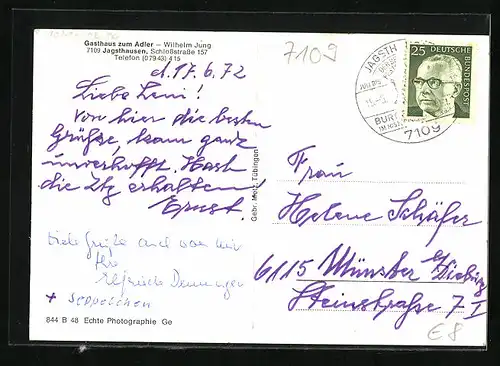 Gasthaus zum Adler – Wilhelm Jung
7109 Jagsthausen, Schloßstraße 157
Telefon (07943) 415
7109
d. 17.6.72
Liebe Leni!
Von hier die besten
Grüße, kam ganz
unverhofft. Hast
die Ztg erhalten?
Ernst.
Viele Grüße auch von mir
Ihre
Elfriede
+
844 B 48 Echte Photographie Ge
Gebr. Metz, Tübingen
JAGSTH
BURG
7109
25
DEUTSCHE BUNDESPOST
Frau
Helene Schäfer
6115 Münster b/ Dieburg
Steinstraße 7 I
€8